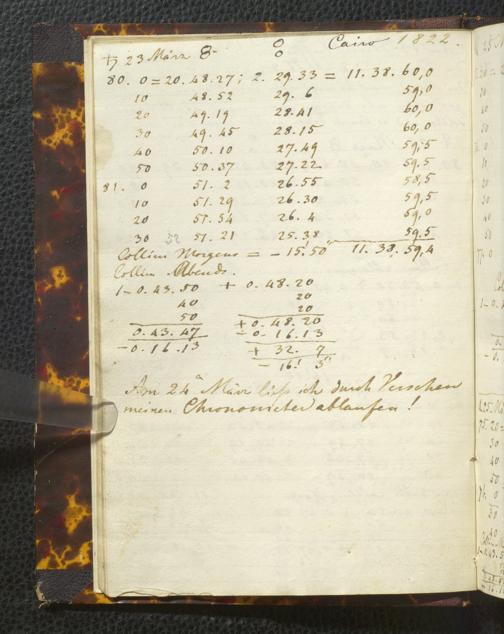 ♄ 23 März 8- 8 Cairo 1822.
80. 0 = 20. 48. 27; 2. 29. 33 = 11. 38. 60,0
10 48. 52 29. 6 59,0
20 49. 19 28. 41 60,0
30 49. 45 28. 15 60,0
40 50. 10 27. 49 59,5
50 50. 37 27. 22 59,5
81. 0 51. 2 26. 55 58,5
10 51. 29 26. 30 59,5
20 51. 54 26. 4 59,0
30 51. 21 25. 38 59,5
Collim Morgens = - 15. 50" 11. 38. 59,4
Collim Abends.
1 - 0. 43. 50 + 0. 48. 20
40 20
50 20
0. 43. 47 + 0. 48. 20
- 0. 16. 13 - 0. 16. 13
+ 32. 7
- 16. 3
Am 24 März ließ ich durch Versehen
meinen Chronometer ablaufen!